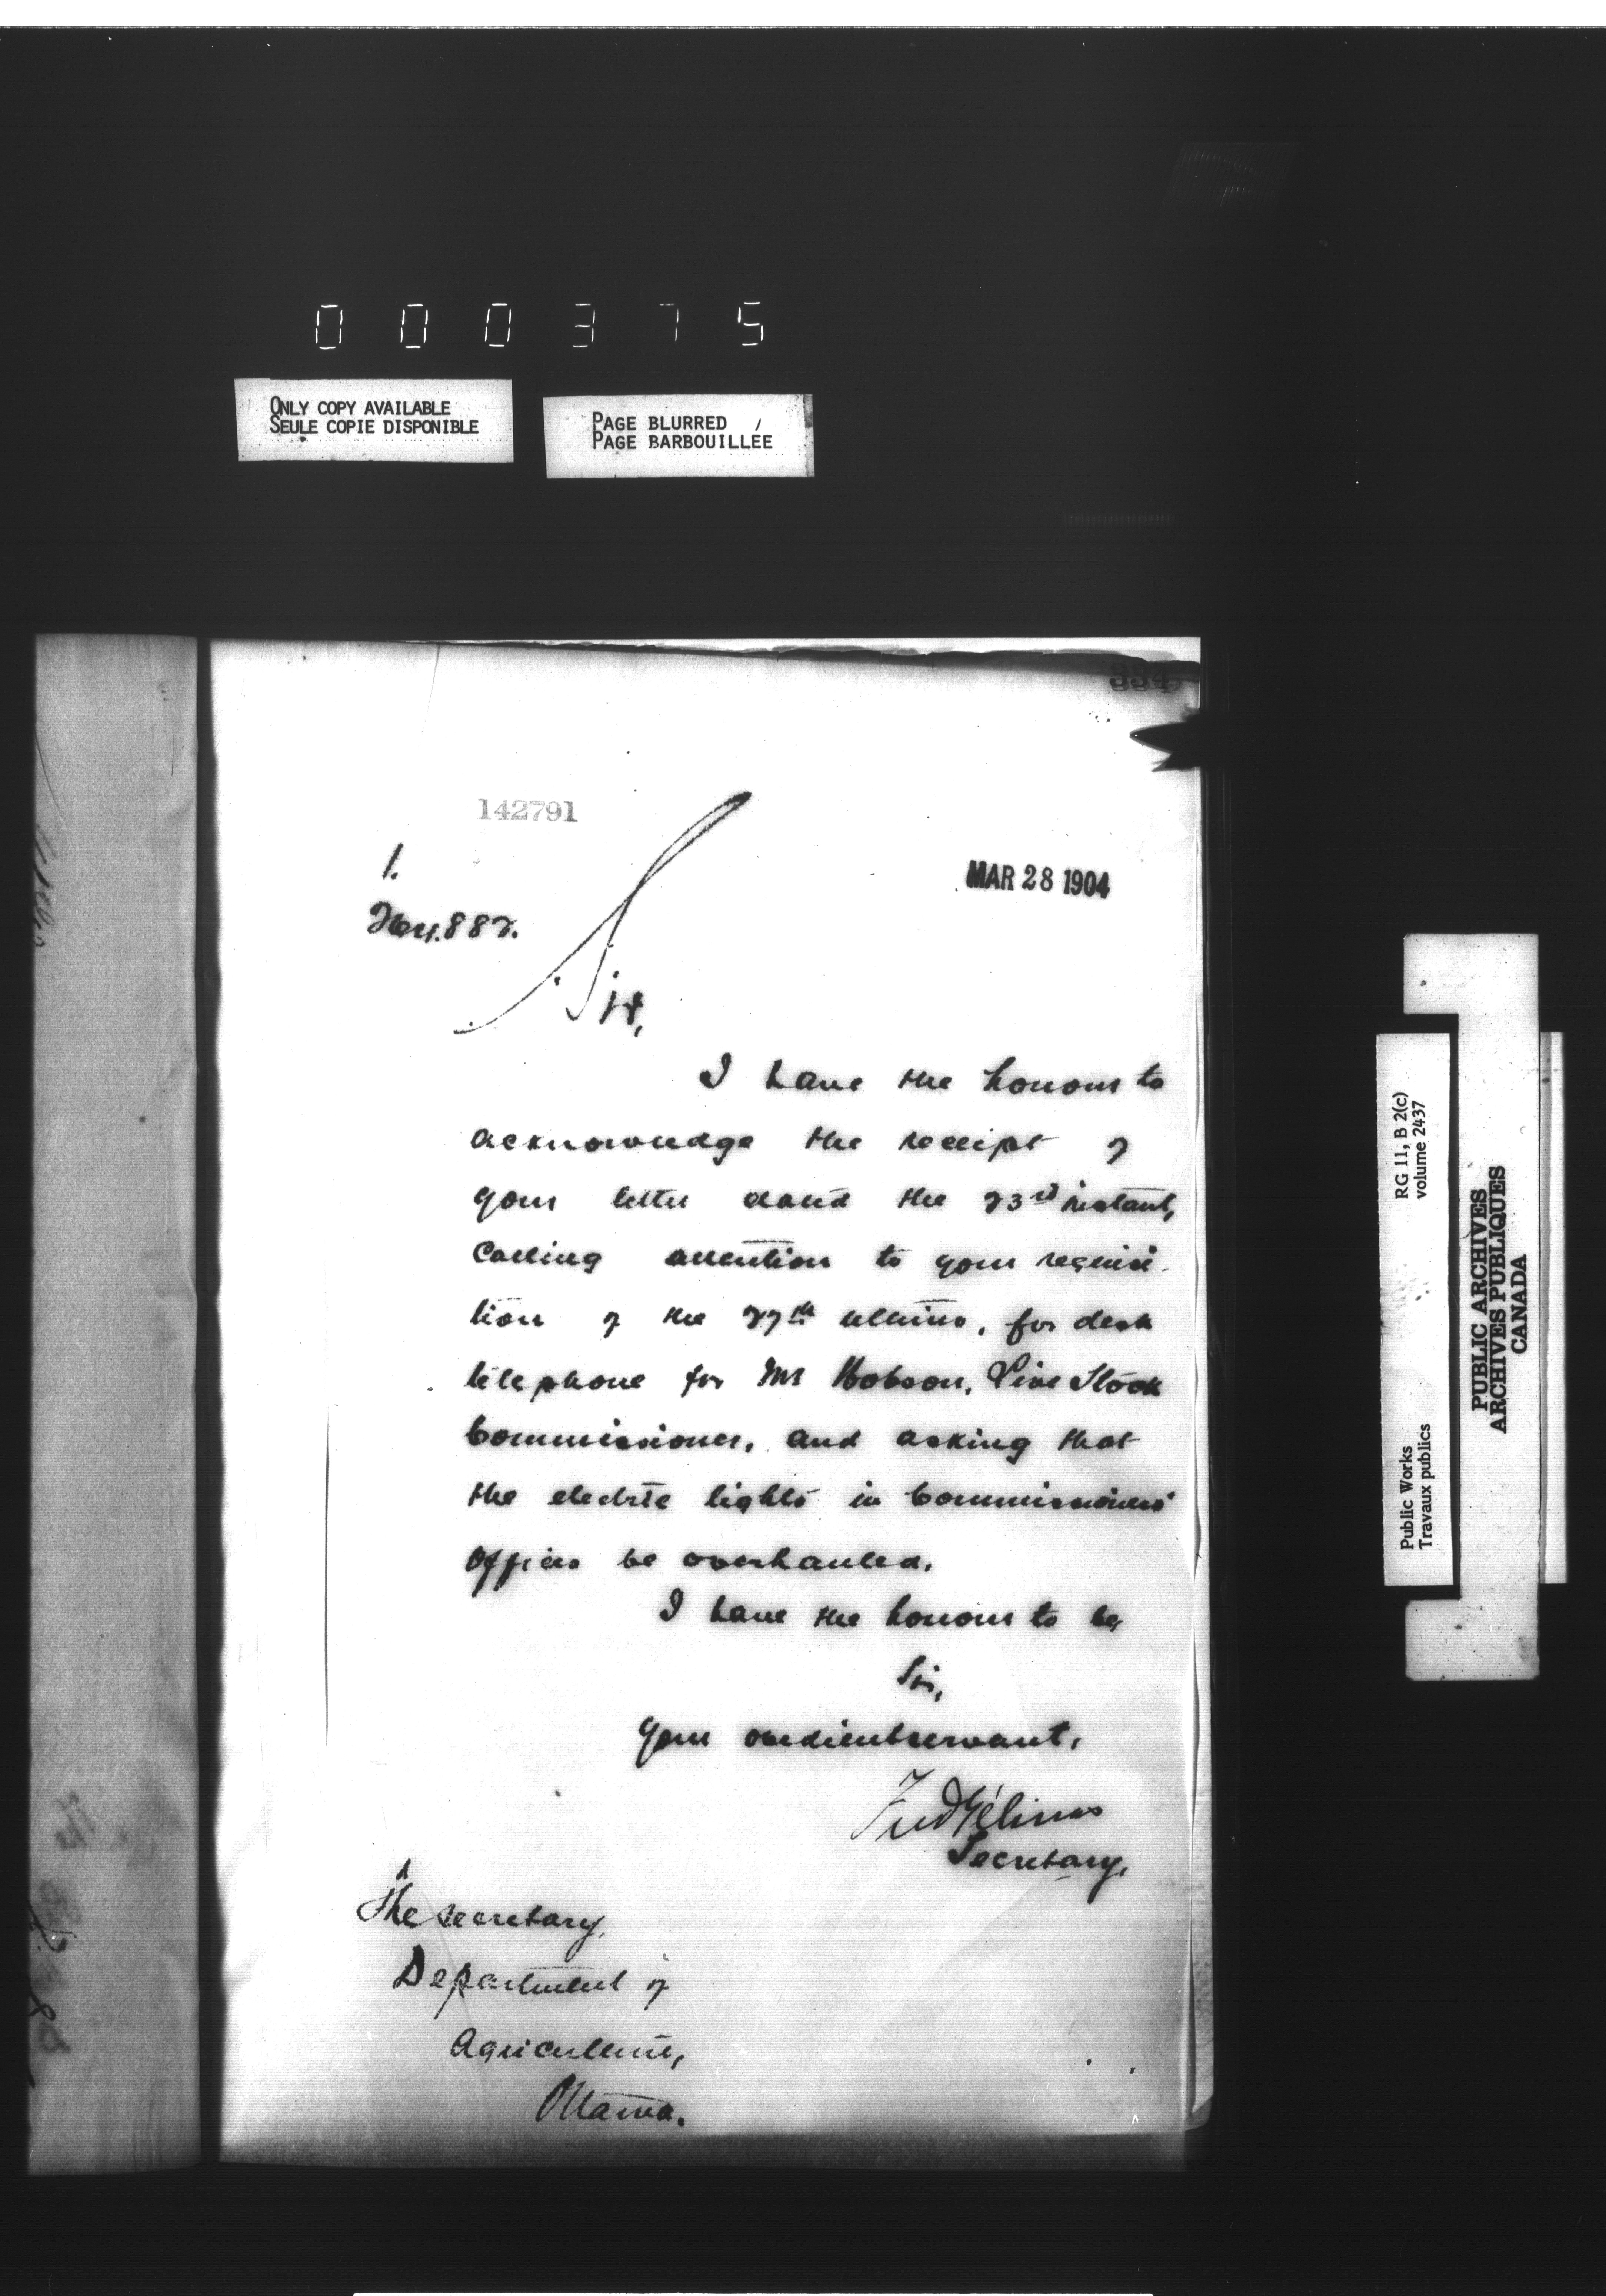 000375
ONLY COPY AVAILABLE
SEULE COPIE DISPONIBLE
PAGE BLURRED /
PAGE BARBOUILLÉE
334
142791
1.
MAR 28 1904
Sir,
I have the honour to
acknowledge the receipt of
your letter dated the 23rd instant,
calling attention to your requisi-
tion of the 27th ultimo, for desk
telephone for Mr Hobson, Live Stock
Commissioner, and asking that
the electric lights in Commissioners'
Offices be overhauled.
I have the honour to be,
Sir,
Your obedient servant,
Fred Gélinas
Secretary,
The Secretary,
Department of
Agriculture,
Ottawa.
RG 11, B 2(c)
volume 2437
Public Works
Travaux publics
PUBLIC ARCHIVES
ARCHIVES PUBLIQUES
CANADA